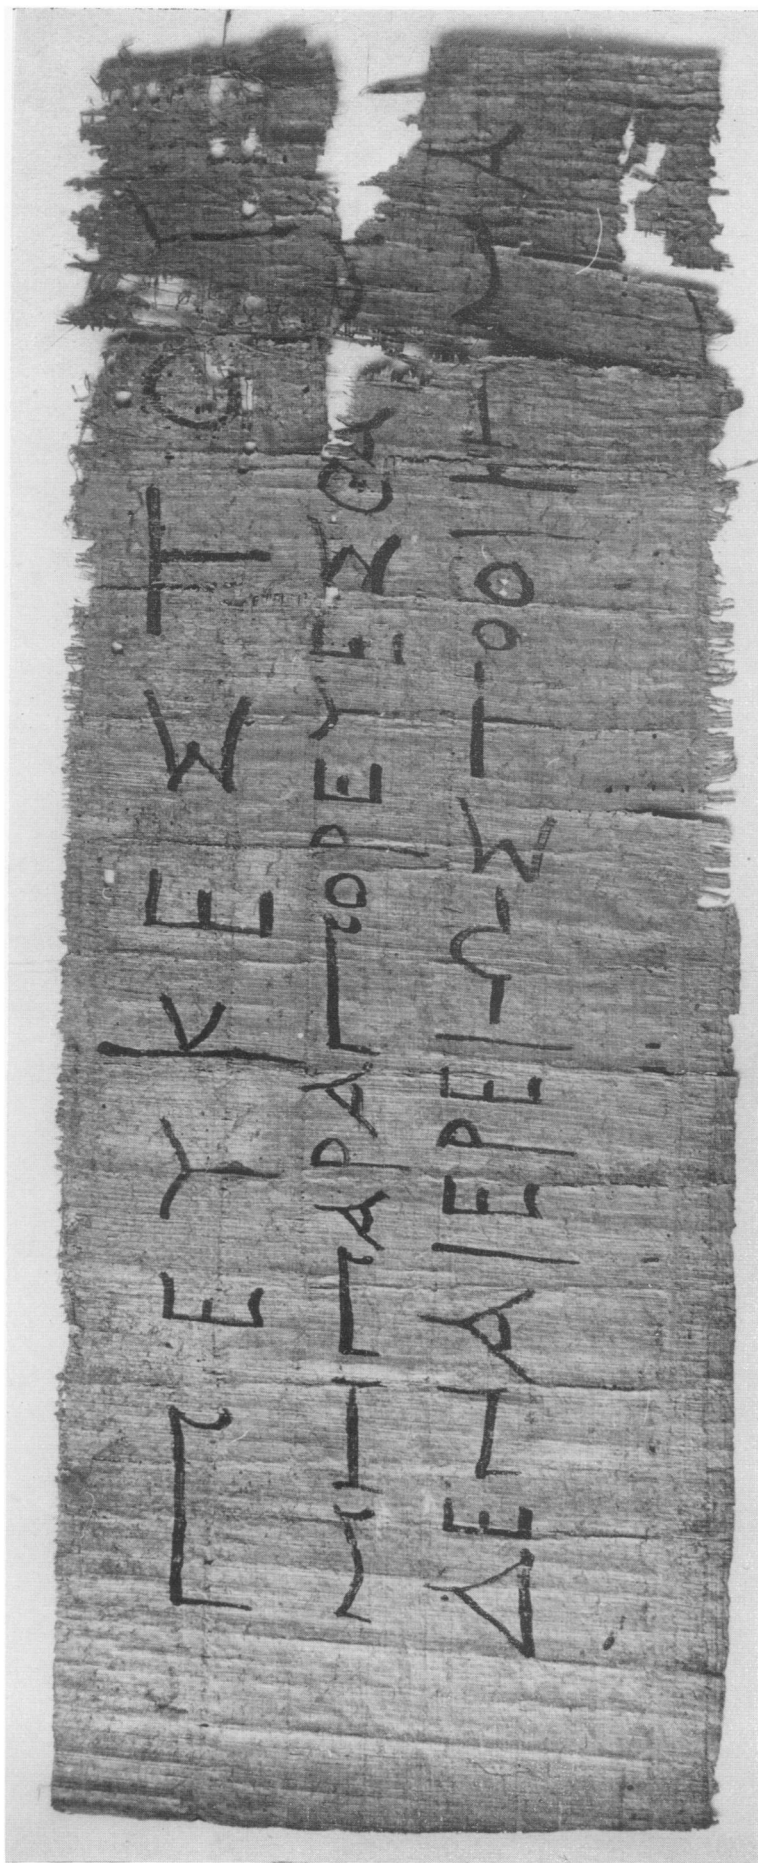 ΠΕΥΚΕΣΤΟΥ
ΜΗΠΑΡΑΠΟΡΕΥΕΣΘΑ
ΔΕΝΑΙΕΡΕΙΩΣΤΟΟΙΚΗΜΑ